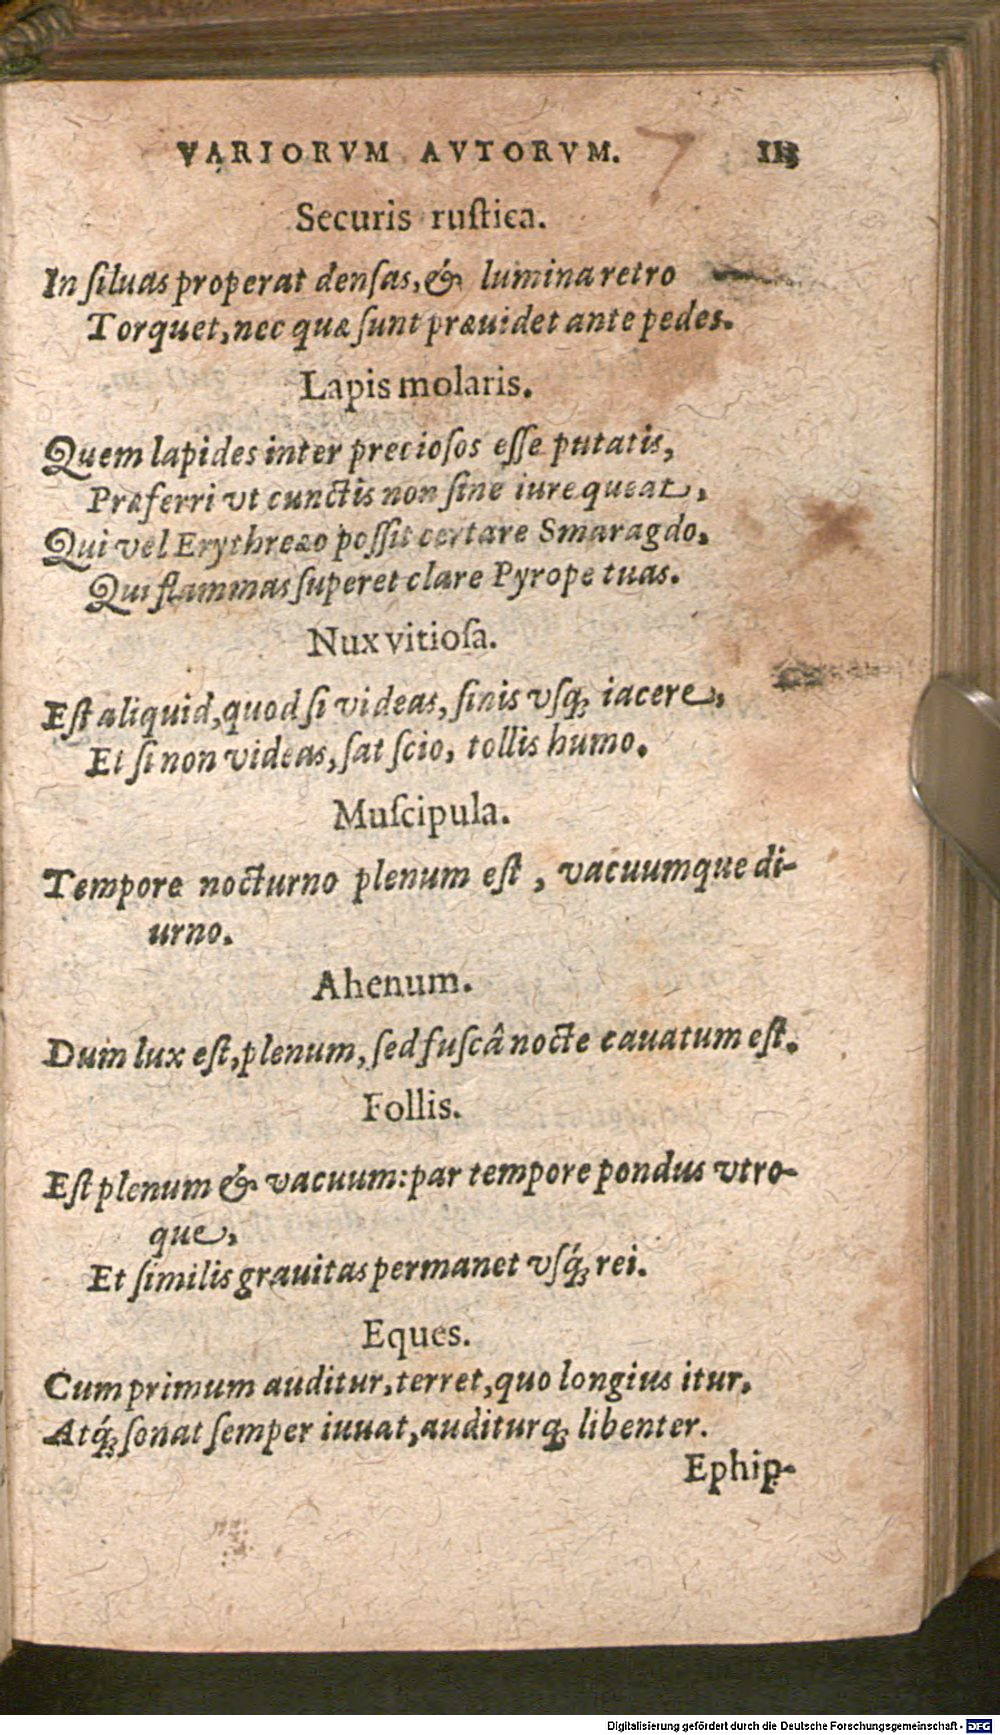 VARIORVM AVTORVM.
Securis ruſtica.
In ſiluas properat denſas, & lumina retro
Torquet, nec quæ ſunt præuidet ante pedes.
Lapis molaris.
Quem lapides inter precioſos eſſe putatis,
Præferri vt cunctis non ſine iure queat,
Qui vel Erythreæo poſſit certare Smaragdo,
Qui flammas ſuperet clare Pyrope tuas.
Nux vitioſa.
Eſt aliquid, quod ſi videas, ſinis vſq; iacere,
Et ſi non videas, ſat ſcio, tollis humo.
Muſcipula.
Tempore nocturno plenum eſt, vacuumque di-
urno.
Ahenum.
Dum lux eſt, plenum, ſed fuſcâ nocte cauatum eſt.
Follis.
Eſt plenum & vacuum: par tempore pondus vtro-
que,
Et ſimilis grauitas permanet vſq́; rei.
Eques.
Cum primum auditur, terret, quo longius itur,
Atq́; ſonat ſemper iuuat, auditurq; libenter.
Ephip-
Digitalisierung gefördert durch die Deutsche Forschungsgemeinschaft - DFG